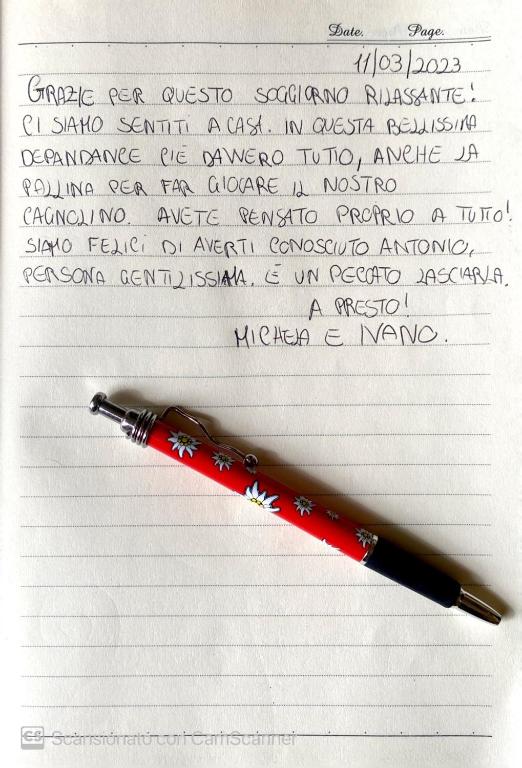 Date. Page.
11/03/2023
GRAZIE PER QUESTO SOGGIORNO RILASSANTE!
CI SIAMO SENTITI A CASA. IN QUESTA BELLISSIMA
DEPANDANCE C'È DAVVERO TUTTO, ANCHE LA
PALLINA PER FAR GIOCARE IL NOSTRO
CAGNOLINO. AVETE PENSATO PROPRIO A TUTTO!
SIAMO FELICI DI AVERTI CONOSCIUTO ANTONIO,
PERSONA GENTILISSIMA. È UN PECCATO LASCIARLA.
A PRESTO!
MICHELA E IVANO.
CS Scansionato con CamScanner